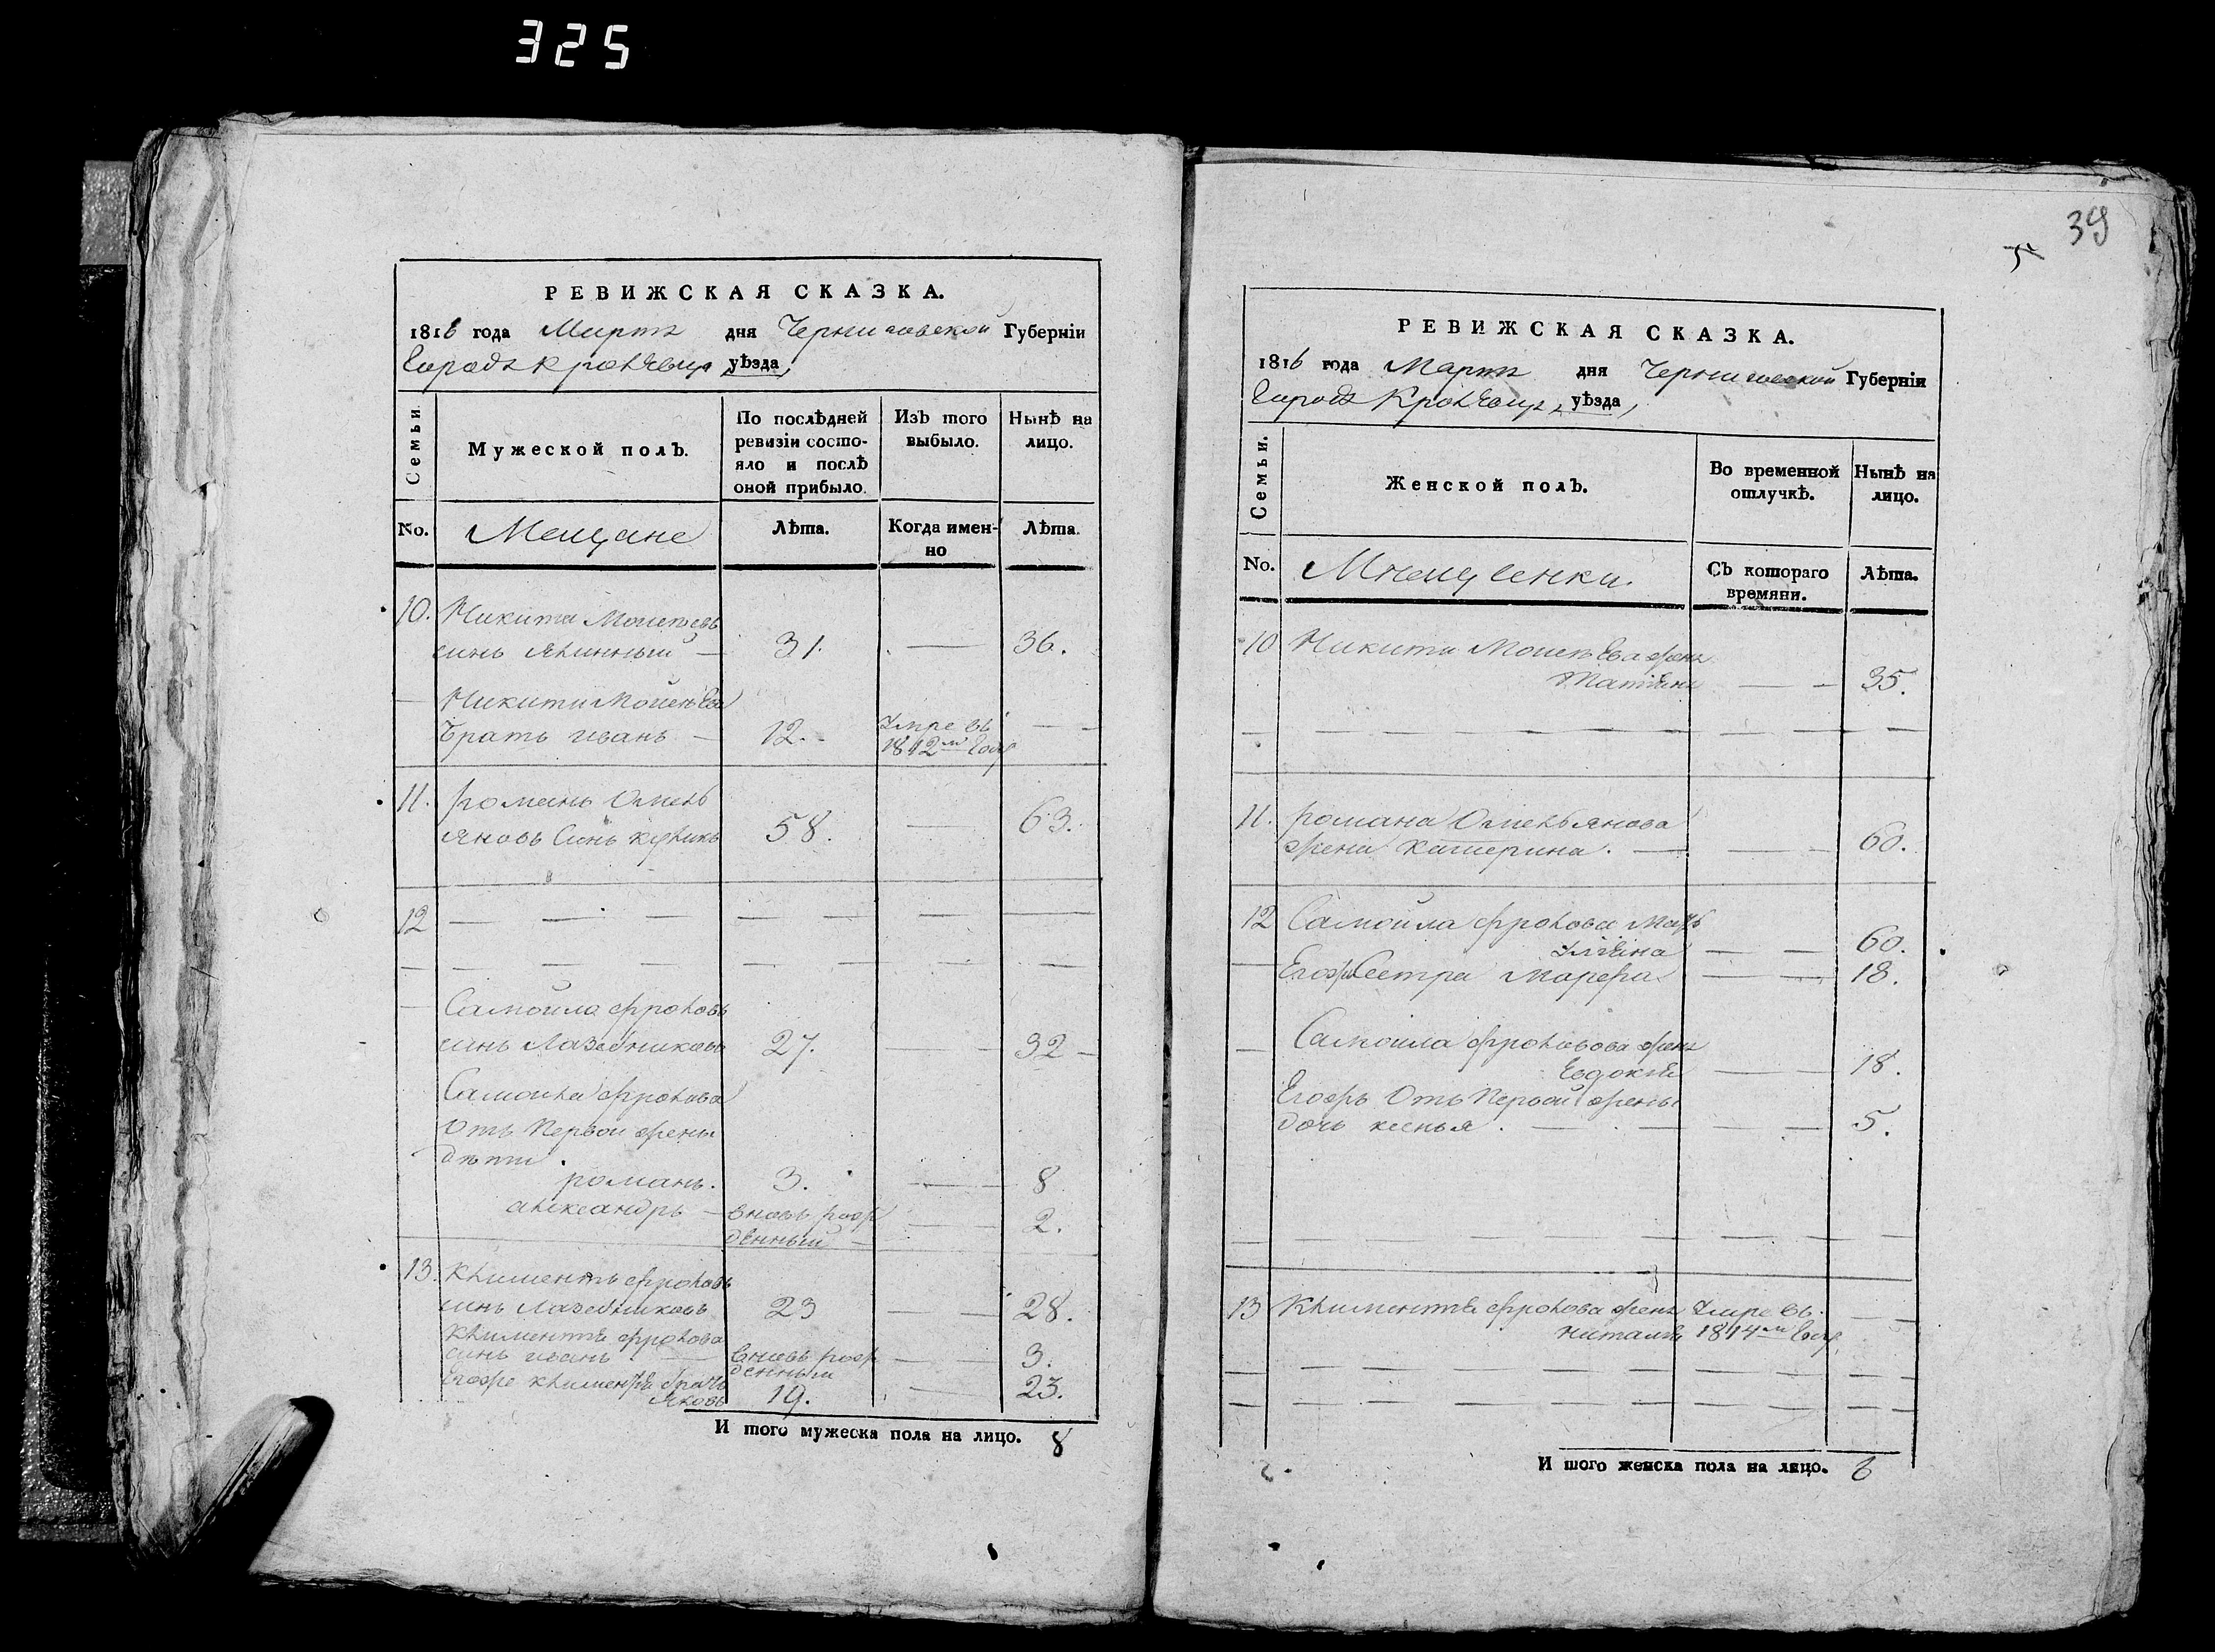 325
РЕВИЖСКАЯ СКАЗКА.
1816 года Мартъ дня Черниговской Губерніи
Городъ Кролѣвца уѣзда
Семьи. Мужеской полъ. По послѣдней ревизіи состояло и послѣ оной прибыло. Изъ того выбыло. Нынѣ на лицо.
No. Мещане Лѣта. Когда именно Лѣта.
10. Никита Моисеевъ
синъ 31. — 36.
— Никити Моисѣева
братъ иванъ — 12. — умре въ 1812м году —
11. романъ Омель
яновъ Синъ 58. — 63.
12 — — —
Самойла фроловъ
синъ Лазебниковъ 27. — 32 —
Самойла фролова
Отъ Первои жены
дѣти.
романъ. 3. — 8
александръ — вновь рожденный — 2.
13. Климентъ фроловъ
синъ Лазебниковъ 23 — 28.
Климентѣя фролова
синъ иванъ — вновь рожденный — 3.
Егожъ климентѣя братъ
Яковъ 19. — 23.
И того мужеска пола на лицо. 8
39
5
РЕВИЖСКАЯ СКАЗКА.
1816 года Мартъ дня Черниговской Губерніи
Городъ Кролѣвца, уѣзда,
Семьи. Женской полъ. Во временной отлучкѣ. Нынѣ на лицо.
No. Съ котораго времяни. Лѣта.
10 Никити Моисѣева жена
Татіяна — — 35.
11. романа Омельянова
жена Катерина. — — 60.
12 Самойла фролова мать
— — 60.
Егожъ Сестра Марфа — — 18.
— Самоила фролова жена
Евдокія — — 18.
Егожъ Отъ Первой жены
дочь ксенья. — — 5.
13 Климентѣя фролова жена умре въ
наталія 1814м году — —
И того женска пола на лицо. 6